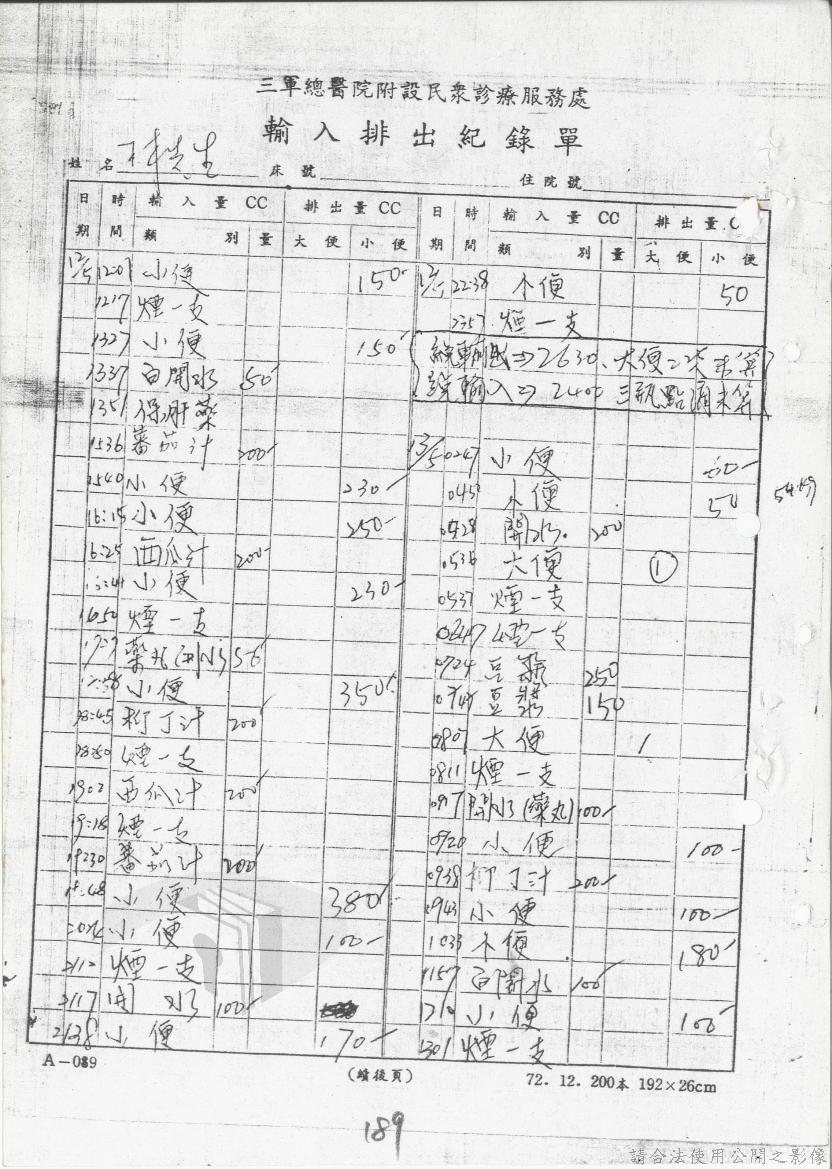 三軍總醫院附設民衆診療服務處
輸入排出紀錄單
姓名 床號 住院號
日期 時間 輸入量CC 排出量CC 日期 時間 輸入量CC 排出量C
類別 量 大便 小便 類別 量 大便 小便
12/5 1201 小便 150
1217 煙一支
1327 小便 150
1337 白開水 50
1351 保肝藥
1536 蕃茄汁 200
1540 小便 230
16:15 小便 250
16:25 西瓜汁 200
小便 230
1650 煙一支
藥丸
小便 350
18:45 柳丁汁 200
18:50 煙一支
1902 西瓜汁 200
19:18 煙一支
蕃茄汁 200
19:48 小便 380
小便 100
2112 煙一支
2117 開水 100
2138 小便 170
12/5 2238 小便 50
2357 煙一支
總輸出⇒2630、大便二次未算
總輸入⇒2400 三瓶點滴未算
13/5 0247 小便
小便 50
0528 開水 200
0536 大便 1
0537 煙一支
煙一支
0724 豆漿 250
豆漿 150
0807 大便 1
0811 煙一支
0917 開水(藥丸) 100
0920 小便 100
0938 柳丁汁 200
0943 小便 100
1033 小便 180
1157 白開水 100
1210 小便 100
1301 煙一支
A-089
(續後頁)
72. 12. 200本 192×26cm
189
請合法使用公開之影像